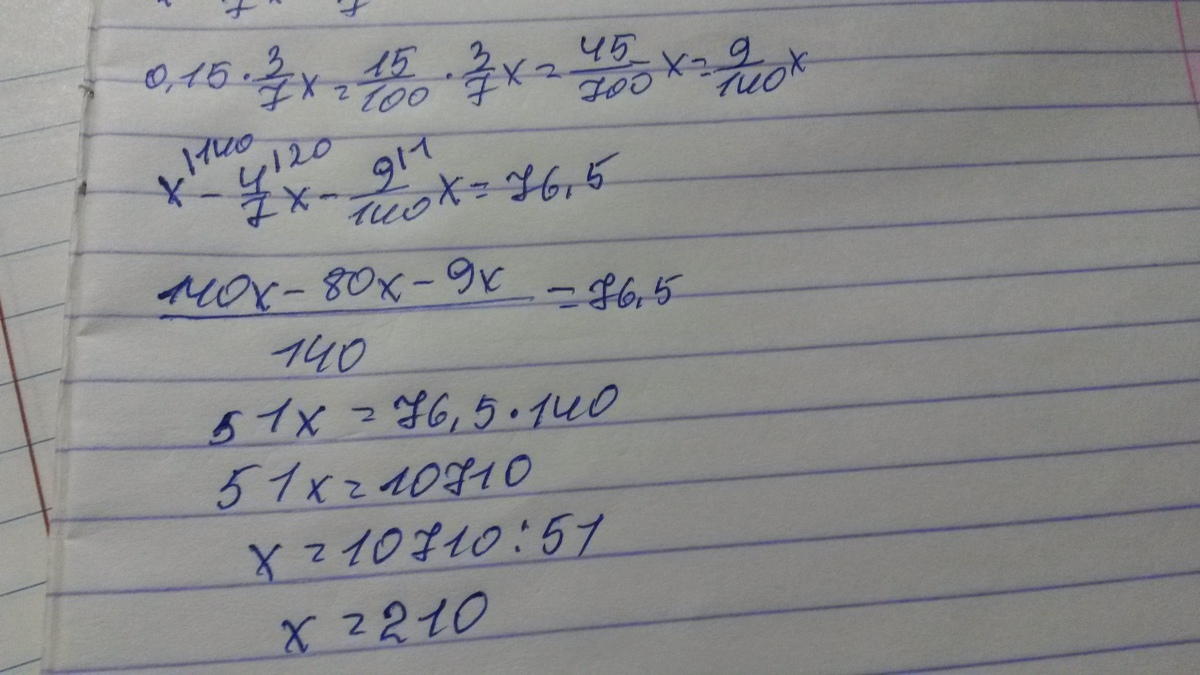 0,15 · 3/7 x = 15/100 · 3/7 x = 45/700 x = 9/140 x
x|140 − 4|20/7 x − 9|1/140 x = 76,5
140x − 80x − 9x / 140 = 76,5
51x = 76,5 · 140
51x = 10710
x = 10710 : 51
x = 210